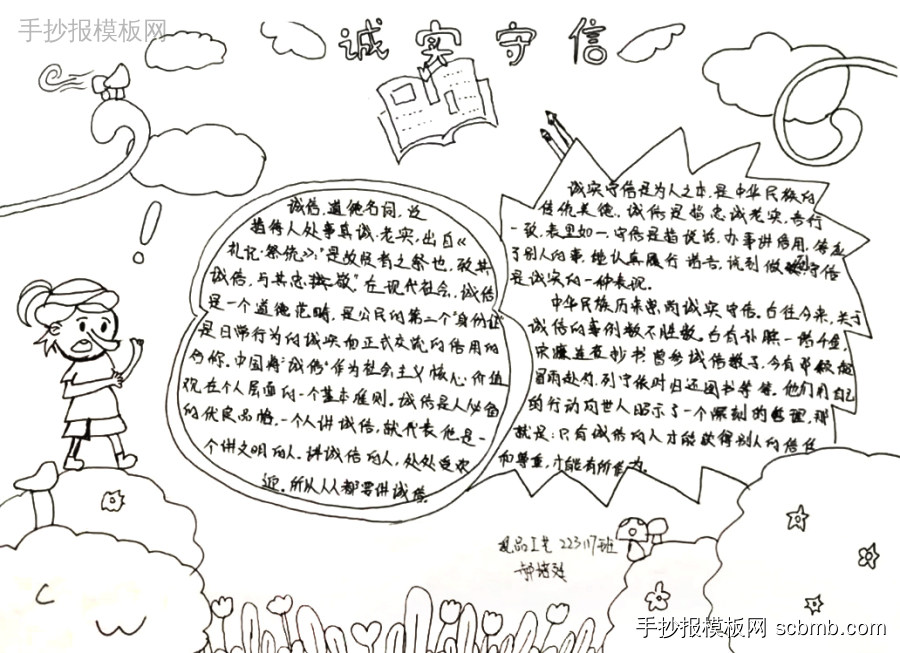 手抄报模板网
诚实守信
诚信，道德名词，泛
指待人处事真诚、老实，出自《
礼记·祭统》："是故贤者之祭也，致其
诚信，与其忠敬"在现代社会，诚信
是一个道德范畴，是公民的第二个"身份证
是日常行为的诚实和正式交流的信用的
合称。中国将"诚信"作为社会主义核心价值
观在个人层面的一个基本准则。诚信是人必备
的优良品格，一个人讲诚信，就代表他是一
个讲文明的人。讲诚信的人，处处受欢
迎，所以人人都要讲诚信。
诚实守信是为人之本，是中华民族的
传统美德。诚信是指忠诚老实，言行
一致，表里如一，守信是指说话、办事讲信用，答应
了别人的事，能认真履行诺言，说到做到守信
是诚实的一种表现。
中华民族历来崇尚诚实守信。古往今来，关于
诚信的事例数不胜数。古有
宋濂连夜抄书曾参诚信教子，今有
冒雨赴约，列宁依时归还图书等等。他们用自己
的行动向世人昭示了一个深刻的哲理，那
就是：只有诚信的人才能获得别人的信任
和尊重，才能有所作为。
工艺 223117班
手抄报模板网 scbmb.com